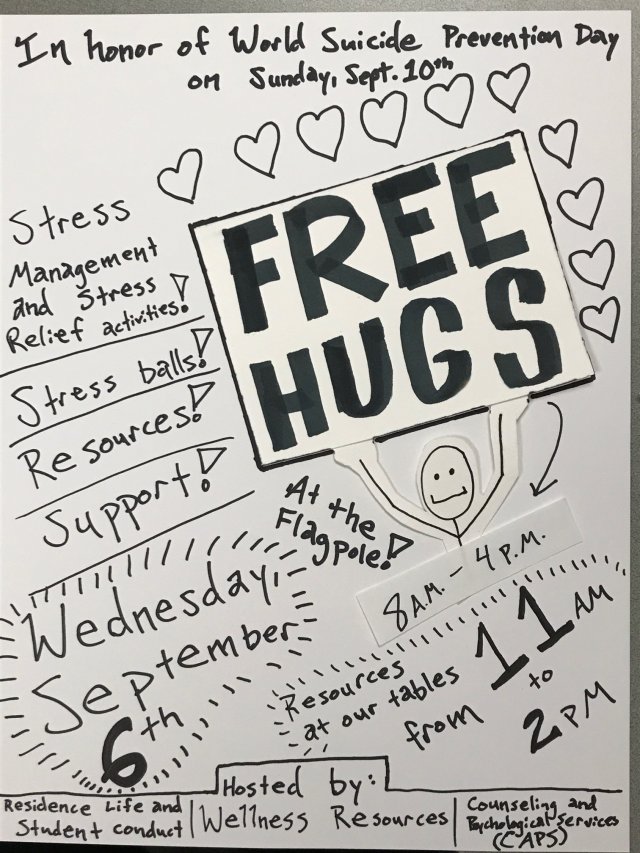 In honor of World Suicide Prevention Day
on Sunday, Sept. 10th
Stress
Management
and Stress
Relief activities!
Stress balls!
Resources!
Support!
FREE
HUGS
At the
Flagpole!
8 A.M. - 4 P.M.
Wednesday,
September
6th
Resources
at our tables
from 11 AM
to
2 PM
Hosted by:
Residence Life and
Student conduct
Wellness Resources
Counseling and
Psychological Services
(CAPS)